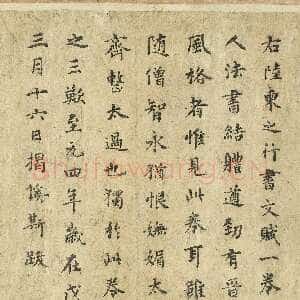 右陸柬之行書文賦一卷
人法書結體遒勁有晉
風格者惟見此卷耳雖
隨僧智永猶恨嫵媚太
齊整太過也獨於此卷
之三歎至元四年歲在戊
三月十六日揭傒斯跋